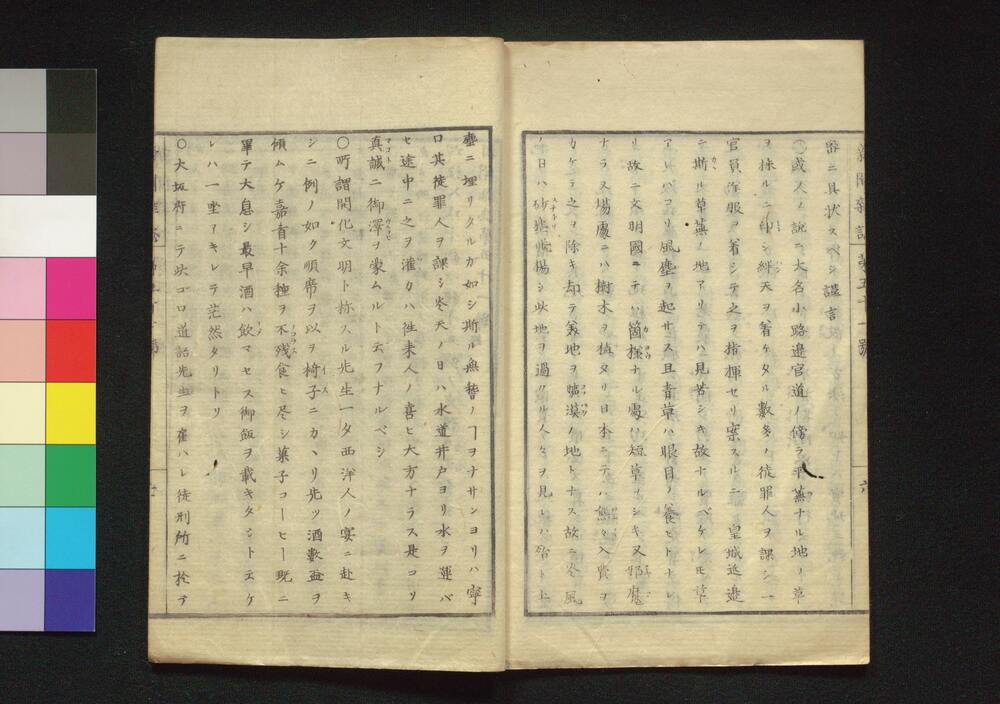 新聞雑誌 第五十一號 六
啓ニ具状スベシ謹言
○或人ノ説ニ大名小路邉官道ノ傍ラ平蕪ナル地ノ草
ヲ採ルニ印シ絆天ヲ着ケタル數多ノ徒罪人ヲ課シ一
官員洋服ヲ着シテ之ヲ指揮セリ案スルニ 皇城近邉
ニ斯ル草蕪ノ地アリテハ見苦シキ故ナルベケレモ草
アレハホコリ風塵ヲ起サス且青草ハ眼目ノ養ヒトナレ
リ故ニ文明國ニテハ箇様ナル處ハ短草ヲシキ又邪魔
ナラス場處ニハ樹木ヲ植タリ日本ニテハ無々入費ヲ
カケラ之ヲ除キ却テ美地ヲ曠漠ノ地トナス故ニ冬風
ノ日ハ砂塵飛揚シ此地ヲ過クル人々ヲ見レハ殆ト土
塵ニ埋リタルカ如シ斯ル無替ノヿヲナサンヨリハ寧
ロ其徒罪人ヲ課シ冬天ノ日ハ水道井戸ヨリ水ヲ運バ
セ途中ニ之ヲ灌カハ徃来人ノ喜ヒ大方ナラス是コソ
真誠ニ御澤ヲ蒙ムルト云フナルベシ
○所謂開化文明ト称スル先生一夕西洋人ノ宴ニ赴キ
シニ例ノ如ク順席ヲ以ヲ椅子ニカヽリ先ツ酒數盃ヲ
傾ムケ嘉肴十余種ヲ不残食ヒ尽シ菓子コーヒー既ニ
畢テ大息シ最早酒ハ飲マセス御飯ヲ載キタシト云ケ
レハ一坐アキレテ茫然タリトリ
○大坂府ニテ此ゴロ道話先生ヲ雇ハレ徒刑所ニ於テ